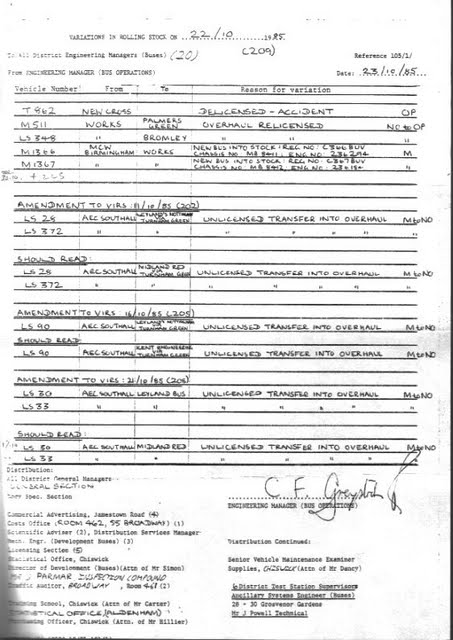 VARIATIONS IN ROLLING STOCK ON 22/10 1985
To All District Engineering Managers (Buses) (20) (209) Reference 105/1/
From ENGINEERING MANAGER (BUS OPERATIONS) Date: 23/10/85
Vehicle Number From To Reason for variation
T 862 NEW CROSS DELICENSED - ACCIDENT OP
M 511 WORKS PALMERS GREEN OVERHAUL RELICENSED NO to OP
LS 348 " BROMLEY " " "
M 1366 MCW BIRMINGHAM WORKS NEW BUS INTO STOCK: REC NO: C366BUV M
CHASSIS NO: MB 8411 ENG NO: 236294
M 1367 " " NEW BUS INTO STOCK: REG NO: C367BUV "
CHASSIS NO: MB 8412, ENG NO: 236184
AMENDMENT TO VIRS: 11/10/85 (202)
LS 28 AEC SOUTHALL LEYLAND'S NOTTINGHAM VIA TURNHAM GREEN UNLICENSED TRANSFER INTO OVERHAUL M to NO
LS 372 " " " " " " "
SHOULD READ:
LS 28 AEC SOUTHALL MIDLAND RED VIA TURNHAM GREEN UNLICENSED TRANSFER INTO OVERHAUL M to NO
LS 372 " " " " " " "
AMENDMENT TO VIRS: 16/10/85 (205)
LS 90 AEC SOUTHALL LEYLAND'S NOTTINGHAM VIA TURNHAM GREEN UNLICENSED TRANSFER INTO OVERHAUL M to NO
SHOULD READ:
LS 90 AEC SOUTHALL KENT ENGINEERING VIA TURNHAM GREEN UNLICENSED TRANSFER INTO OVERHAUL M to NO
AMENDMENT TO VIRS: 21/10/85 (208)
LS 30 AEC SOUTHALL LEYLAND BUS UNLICENSED TRANSFER INTO OVERHAUL M to NO
LS 33 " " " " " " "
SHOULD READ:
LS 30 AEC SOUTHALL MIDLAND RED UNLICENSED TRANSFER INTO OVERHAUL M to NO
LS 33 " " " " " " "
Distribution:
All District General Managers
GENERAL SECTION
Spec. Section
C. F.
ENGINEERING MANAGER (BUS OPERATIONS)
Commercial Advertising, Jamestown Road (4)
Costs Office (ROOM 462, 55 BROADWAY) (1)
Scientific Adviser (2), Distribution Services Manager
Mech. Engr. (Development Buses) (3)
Licensing Section (5)
Statistical Office, Chiswick
Director of Development (Buses)(Attn of Mr Simon)
J PARMAR INSPECTION COMPOUND
Traffic Auditor, BROADWAY, ROOM 467 (2)
Training School, Chiswick (Attn of Mr Carter)
STATISTICAL OFFICE, (ALDENHAM)
Purchasing Officer, Chiswick (Attn of Mr Hillier)
Distribution Continued:
Senior Vehicle Maintenance Examiner
Supplies, CHISWICK (Attn of Mr Dancy)
6 District Test Station Supervisors
Ancillary Systems Engineer (Buses)
28 - 30 Grosvenor Gardens
Mr J Powell Technical